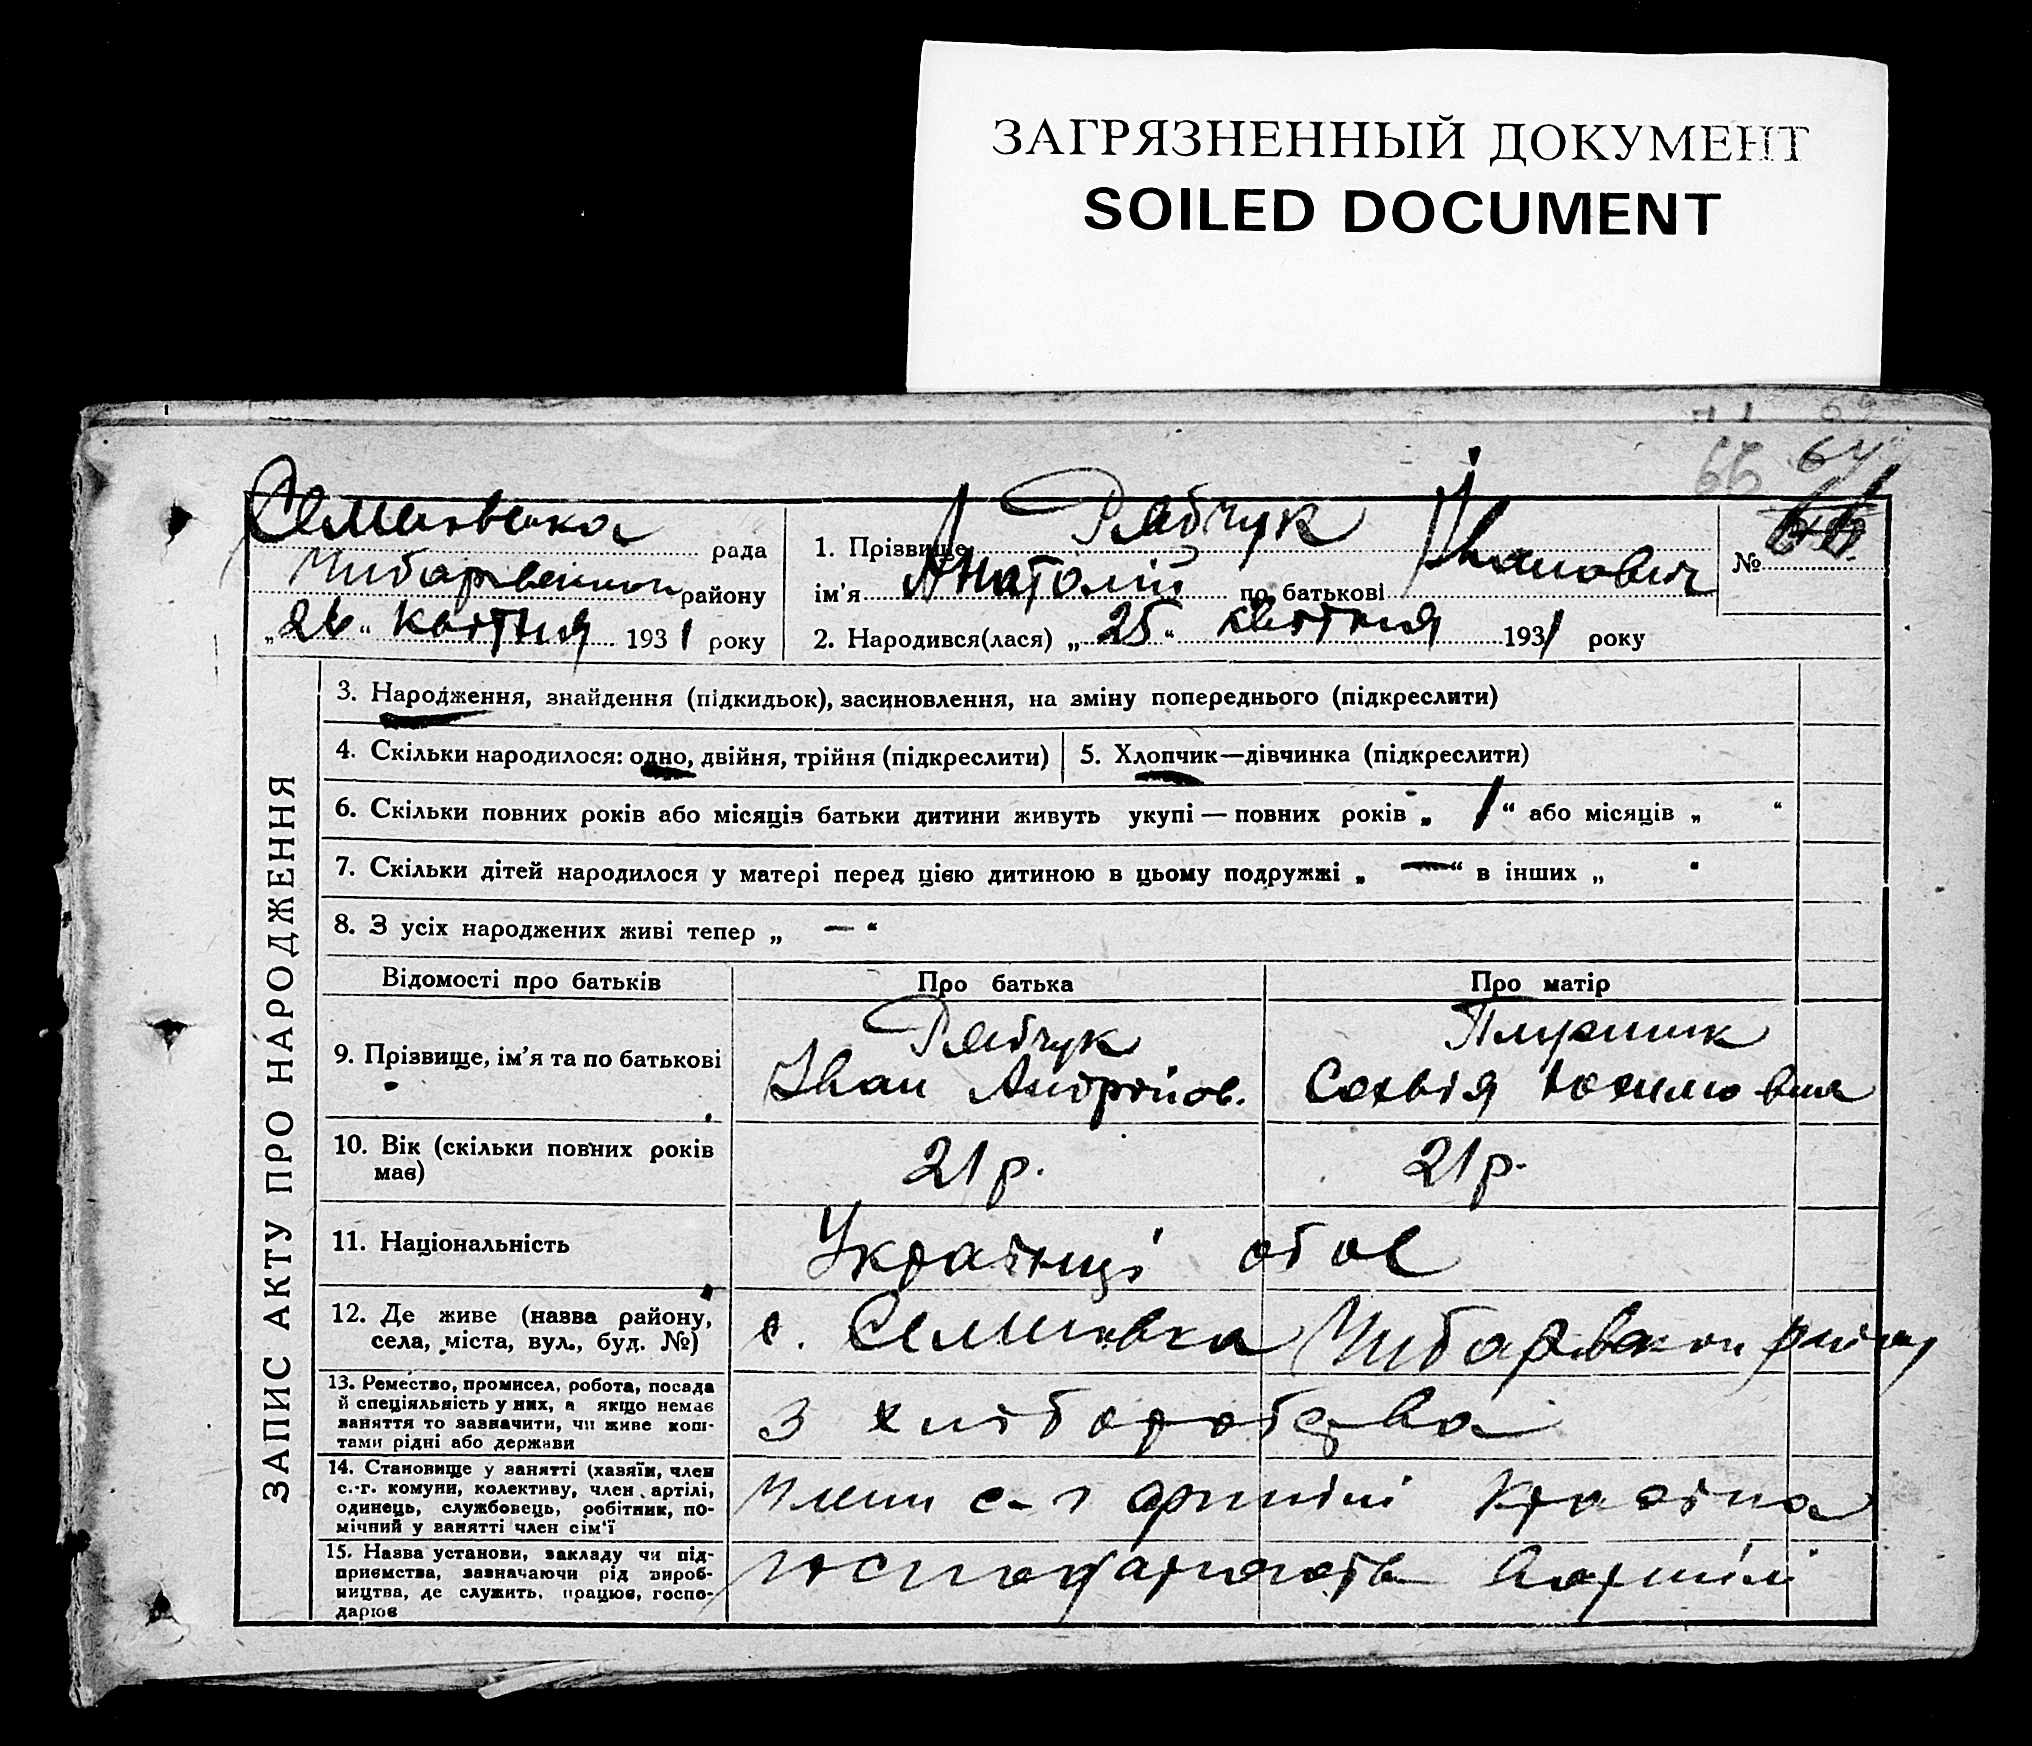 ЗАГРЯЗНЕННЫЙ ДОКУМЕНТ
SOILED DOCUMENT
66 67
рада
району
„26“ квітня 1931 року
1. Прізвище Рябчук
ім'я Анатолій по батькові Іванович
2. Народився(лася) „25“ квітня 1931 року
№ 66
ЗАПИС АКТУ ПРО НАРОДЖЕННЯ
3. Народження, знайдення (підкидьок), засиновлення, на зміну попереднього (підкреслити)
4. Скільки народилося: одно, двійня, трійня (підкреслити)
5. Хлопчик—дівчинка (підкреслити)
6. Скільки повних років або місяців батьки дитини живуть укупі — повних років „ 1 “ або місяців „ “
7. Скільки дітей народилося у матері перед цією дитиною в цьому подружжі „ — “ в інших „ “
8. З усіх народжених живі тепер „ — “
Відомості про батьків
Про батька
Про матір
9. Прізвище, ім'я та по батькові
Рябчук
Іван Андрійов.
10. Вік (скільки повних років
має)
21 р.
21 р.
11. Національність
Українці обоє
12. Де живе (назва району,
села, міста, вул., буд. №)
с. Семенівка
13. Ремество, промисел, робота, посада
й спеціяльність у них, а якщо немає
заняття то зазначити, чи живе кош-
тами рідні або держави
З хліборобства
14. Становище у занятті (хазяїн, член
с.-г. комуни, колективу, член артілі,
одинець, службовець, робітник, по-
мічний у занятті член сім'ї
Члени с-г артілі
15. Назва установи, закладу чи під-
приємства, зазначаючи рід вироб-
ництва, де служить, працює, госпо-
дарює
Господарюють в артілі